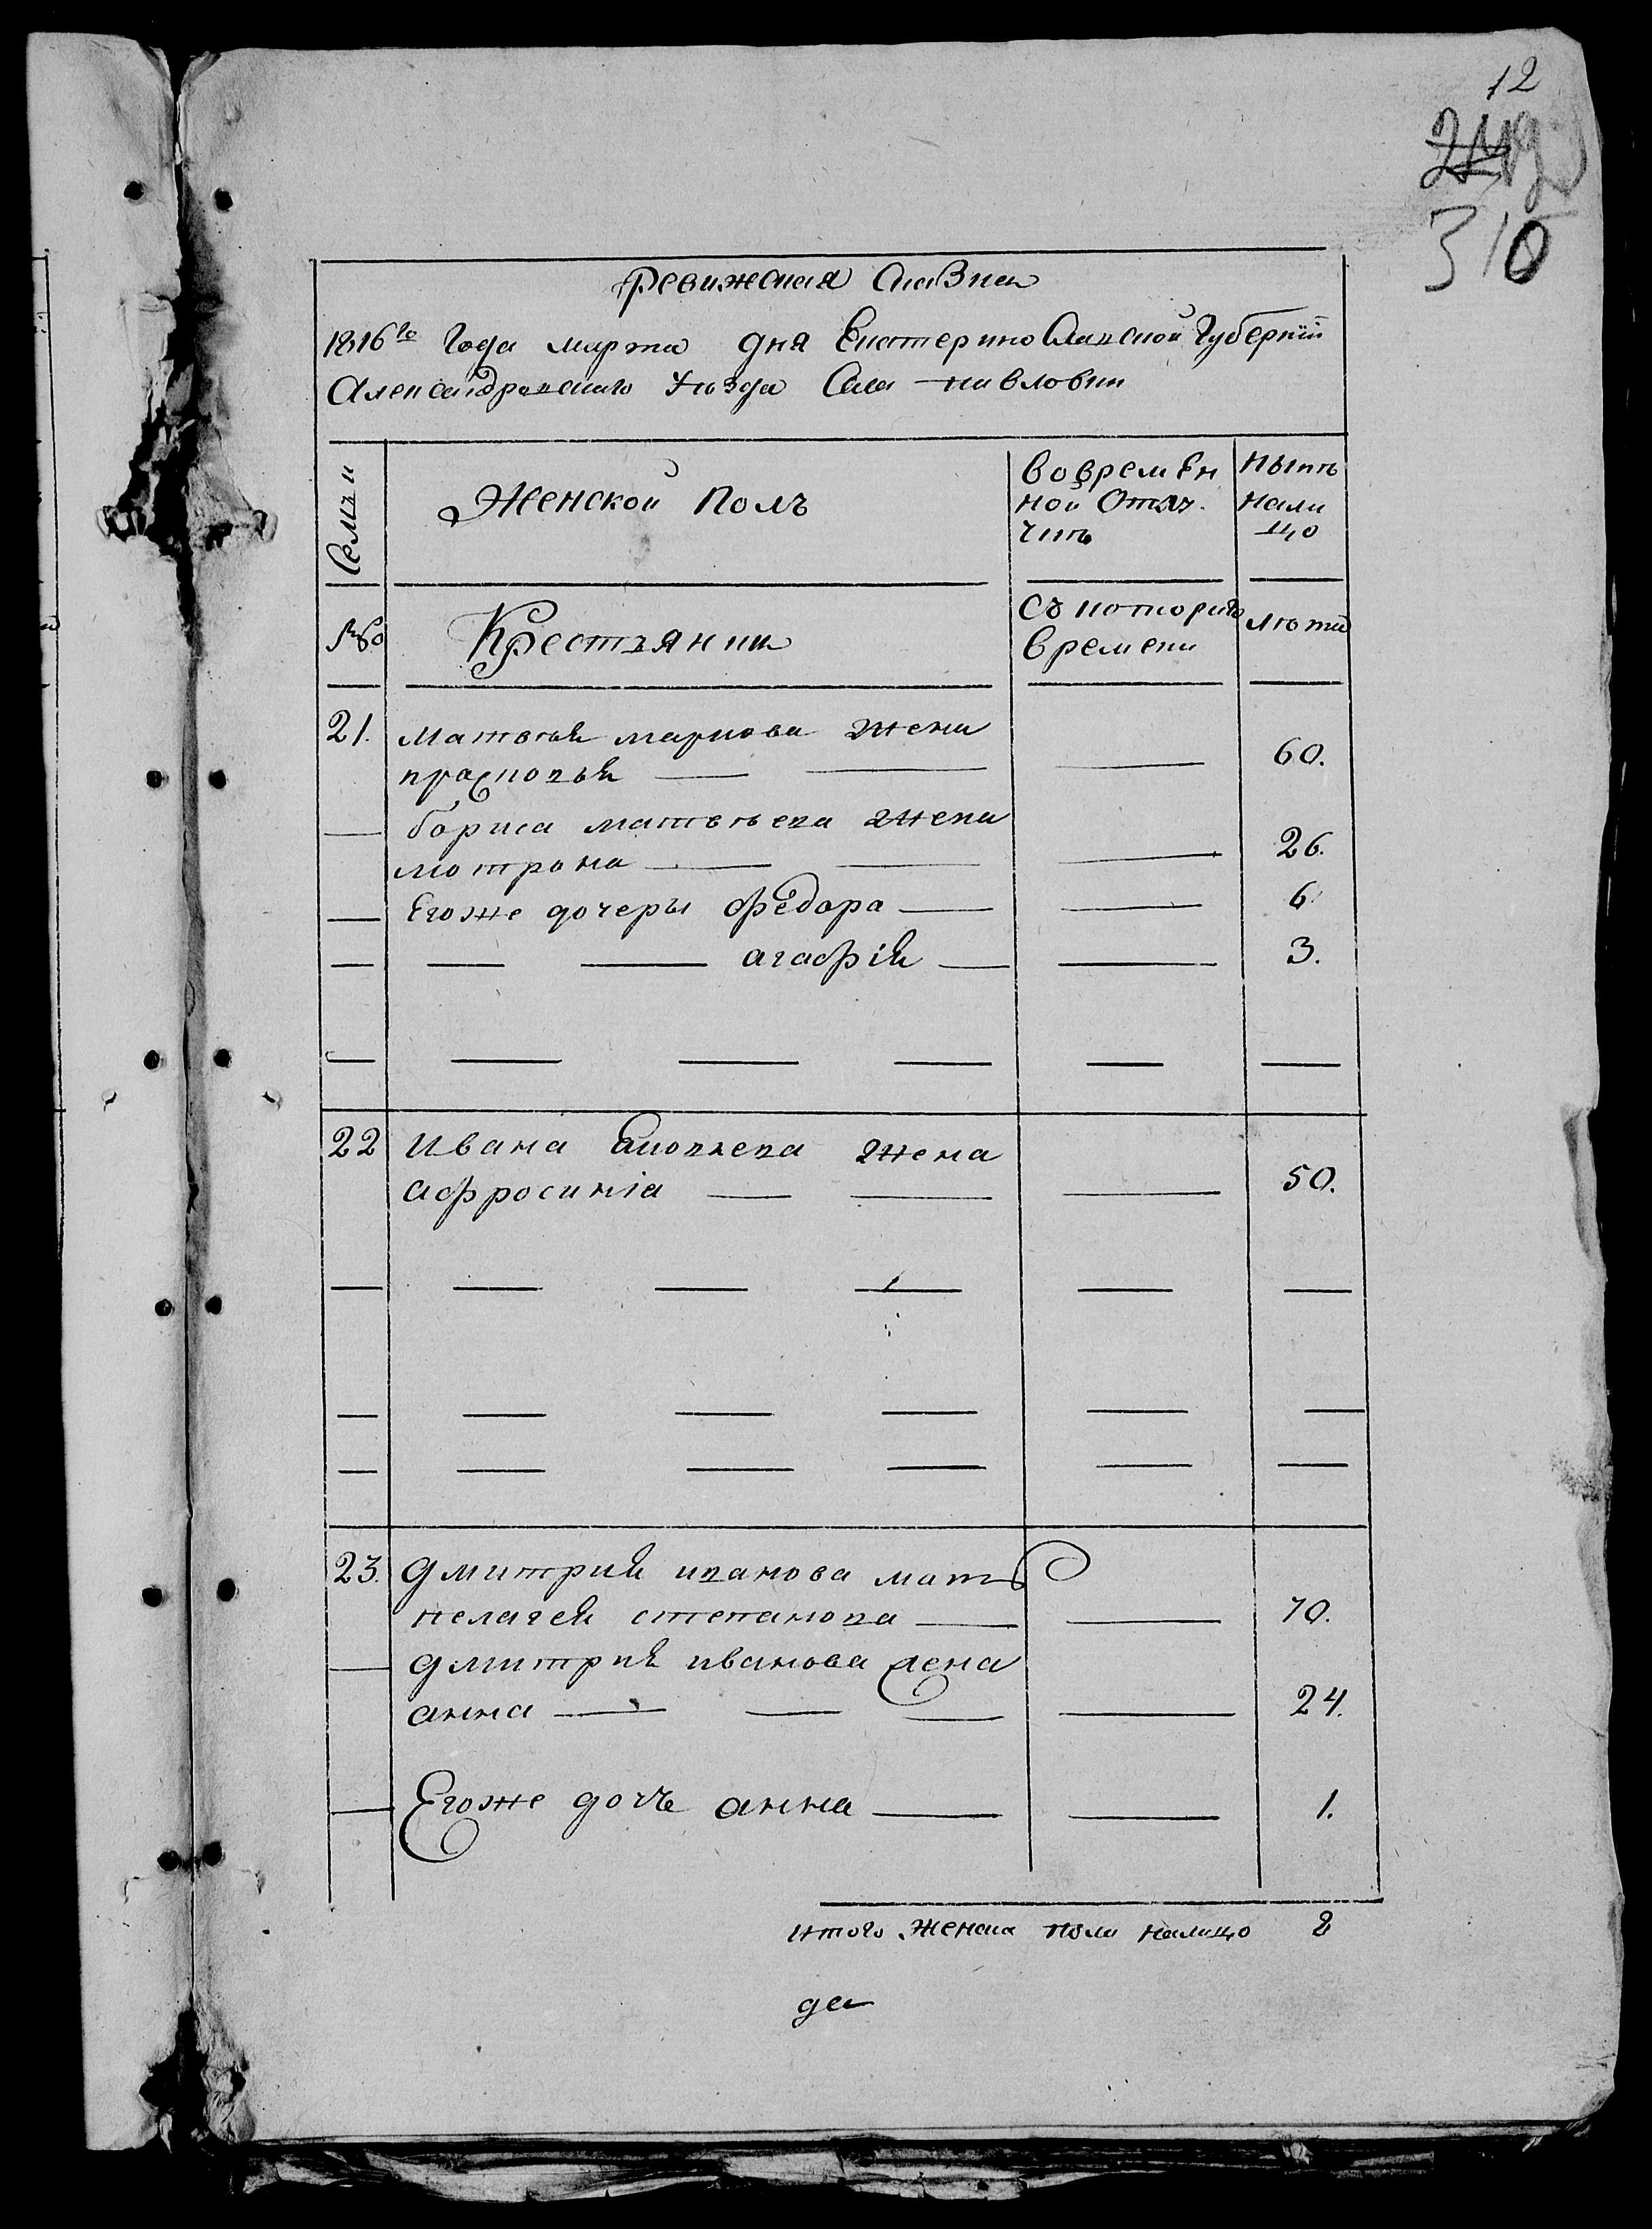 12
310
Ревижская Сказка
1816го Года марта дня Екатеринославской Губернїи
Александровскаго Уезда Села павловки
Семьи
Женской Полъ
Во времен
ной Отлу
чкѣ
Нынѣ
нали
цо
№
Крестьянки
Съ котораго
времени
Лѣта
21. матвѣя маркова жена
прасковья — — — 60.
— бориса матвѣева жена
мотрона — — — 26.
— Егоже дочеры федора — — 6.
— — — агафїя — — 3.
— — — — — —
22 Ивана жена
афросинїа — — — 50.
— — — — — —
— — — — — —
— — — — — —
23. дмитрия иванова мать
пелагея степанова — — 70.
— дмитрия иванова жена
анна — — — — 24.
— Егоже дочь анна — — 1.
итого женска пола налицо 8